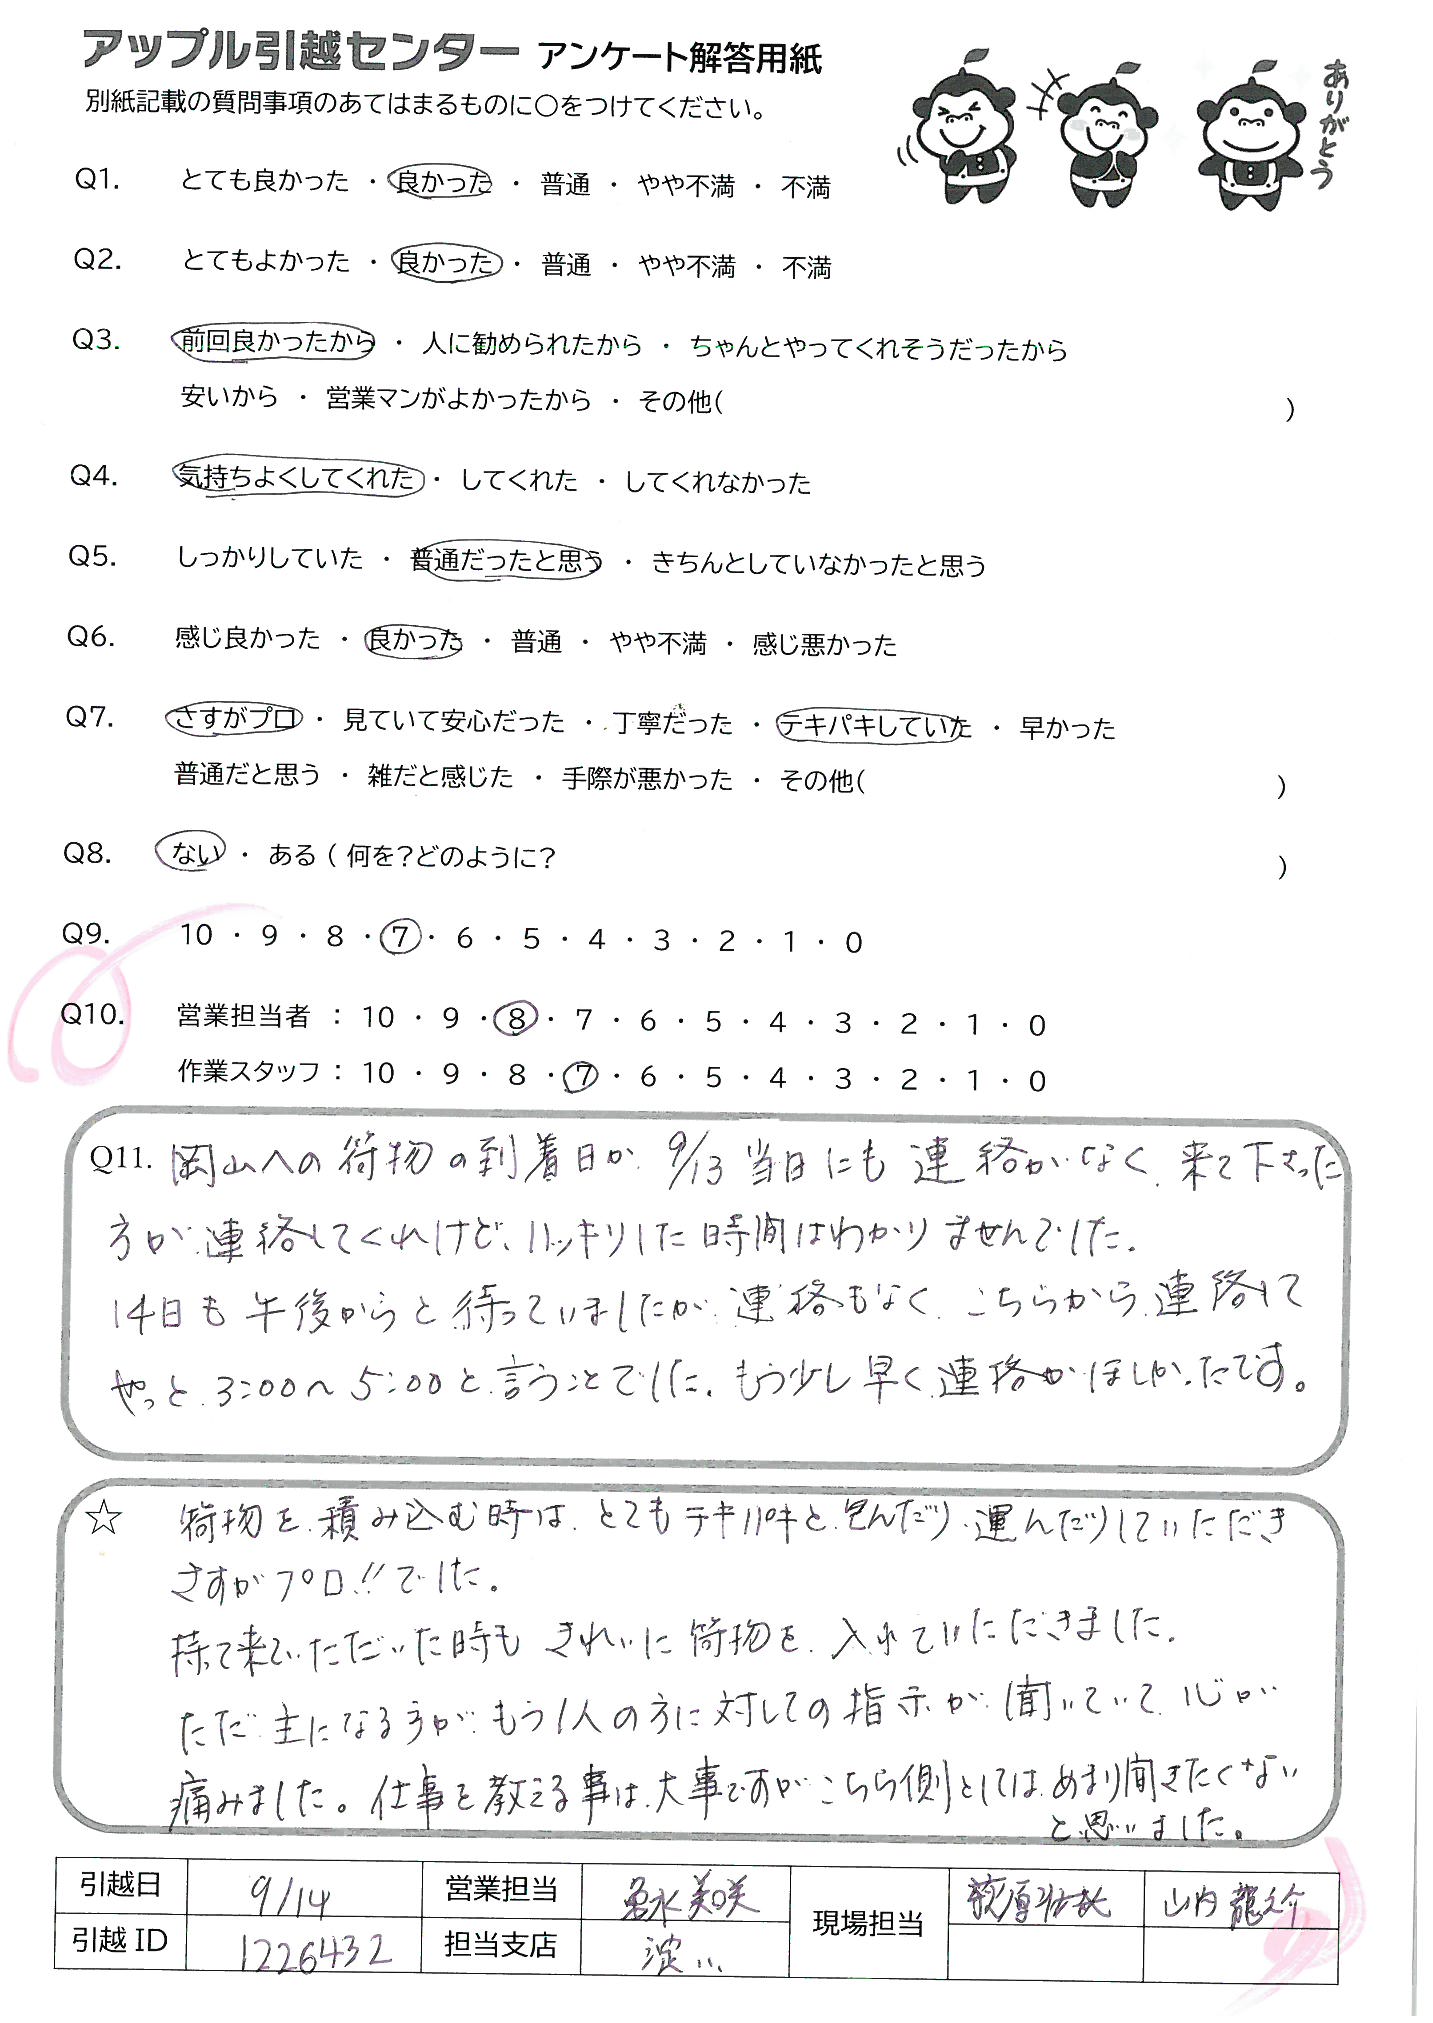 アップル引越センター アンケート解答用紙
別紙記載の質問事項のあてはまるものに○をつけてください。
ありがとう
Q1. とても良かった ・ 良かった ・ 普通 ・ やや不満 ・ 不満
Q2. とてもよかった ・ 良かった ・ 普通 ・ やや不満 ・ 不満
Q3. 前回良かったから ・ 人に勧められたから ・ ちゃんとやってくれそうだったから
安いから ・ 営業マンがよかったから ・ その他( )
Q4. 気持ちよくしてくれた ・ してくれた ・ してくれなかった
Q5. しっかりしていた ・ 普通だったと思う ・ きちんとしていなかったと思う
Q6. 感じ良かった ・ 良かった ・ 普通 ・ やや不満 ・ 感じ悪かった
Q7. さすがプロ ・ 見ていて安心だった ・ 丁寧だった ・ テキパキしていた ・ 早かった
普通だと思う ・ 雑だと感じた ・ 手際が悪かった ・ その他( )
Q8. ない ・ ある ( 何を?どのように? )
Q9. 10 ・ 9 ・ 8 ・ 7 ・ 6 ・ 5 ・ 4 ・ 3 ・ 2 ・ 1 ・ 0
Q10. 営業担当者 : 10 ・ 9 ・ 8 ・ 7 ・ 6 ・ 5 ・ 4 ・ 3 ・ 2 ・ 1 ・ 0
作業スタッフ : 10 ・ 9 ・ 8 ・ 7 ・ 6 ・ 5 ・ 4 ・ 3 ・ 2 ・ 1 ・ 0
Q11. 岡山への荷物の到着日が、9/13当日にも連絡がなく、来て下さった
方が連絡してくれけど、ハッキリした時間はわかりませんでした。
14日も午後からと待っていましたが、連絡もなく、こちらから連絡して
やっと、3:00〜5:00と言うことでした。もう少し早く連絡がほしかったです。
☆ 荷物を積み込む時は、とてもテキパキと、包んだり、運んだりしていただき
さすがプロ!!でした。
持って来ていただいた時も きれいに荷物を、入れていただきました。
ただ主になる方が、もう1人の方に対しての指示が、聞いていて、心が
痛みました。仕事を教える事は、大事ですがこちら側としては、あまり聞きたくない
と思いました。
引越日 9/14 営業担当 美咲 現場担当 山内 龍之介
引越 ID 1226432 担当支店